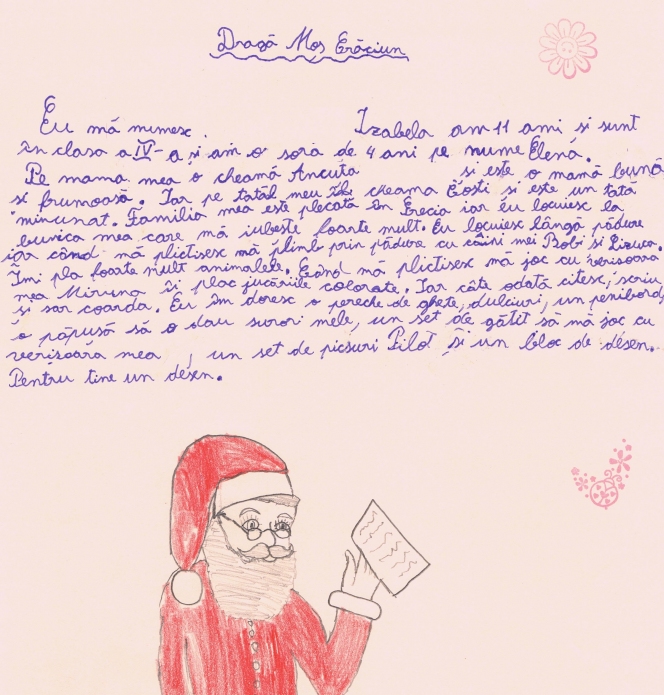 Dragă Moș Crăciun
Eu mă numesc Izabela am 11 ani și sunt
în clasa a IV-a și am o soră de 4 ani pe nume Elena.
Pe mama mea o cheamă Ancuța și este o mamă bună
și frumoasă. Iar pe tatăl meu îl cheama Costi și este un tată
minunat. Familia mea este plecată în Grecia iar eu locuiesc la
bunica mea care mă iubește foarte mult. Eu locuiesc lângă pădure
iar când mă plictisesc mă plimb prin pădure cu câini mei Bobi și
Îmi pla foarte mult animalele. Când mă plictisesc mă joc cu verisoara
mea Miruna îi plac jucăriile colorate. Iar câte odată citesc, scriu
și sar coarda. Eu îm doresc o pereche de ghete, dulciuri, un penibord
o păpușă să o dau surori mele, un set de gătit să mă joc cu
verișoara mea, un set de picsuri Pilot și un bloc de desen.
Pentru tine un desen.